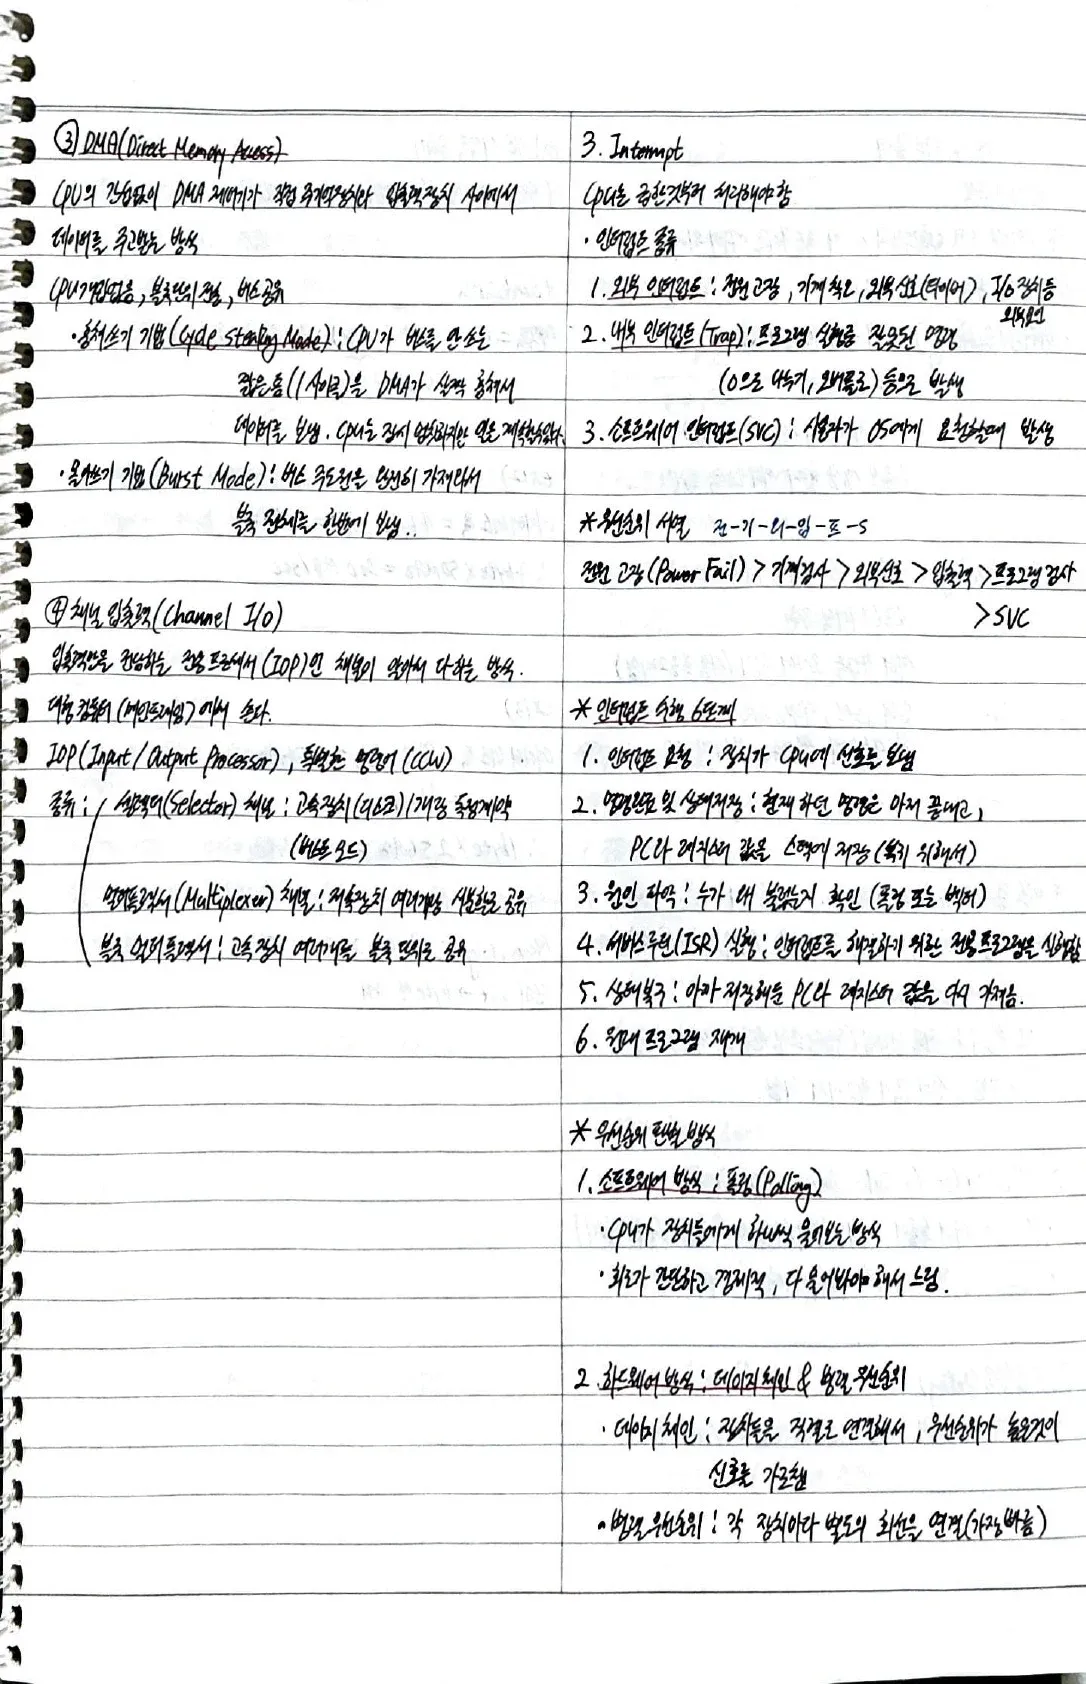 ③ DMA(Direct Memory Access)
CPU의 간섭없이 DMA 제어기가 직접 주기억장치와 입출력장치 사이에서
데이터를 주고받는 방식
CPU개입없음, 블록단위 전송, 버스공유
·훔쳐쓰기 기법(Cycle Stealing Mode) : CPU가 버스를 안 쓰는
짧은 틈(1사이클)을 DMA가 살짝 훔쳐서
데이터를 보냄. CPU는 잠시 멈칫하지만 일은 계속할수있다.
·몰아쓰기 기법(Burst Mode) : 버스 주도권을 완전히 가져와서
블록 전체를 한번에 보냄..
④ 채널 입출력(Channel I/O)
입출력만을 전담하는 전용 프로세서(IOP)인 채널이 알아서 다하는 방식.
대형컴퓨터(메인프레임)에서 쓴다.
IOP(Input/Output Processor), 특별한 명령어(CCW)
종류: 셀렉터(Selector) 채널 : 고속장치(디스크) 1개랑 독점계약
(버스트모드)
멀티플렉서(Multiplexer) 채널 : 저속장치 여러개랑 시분할로 공유
블록 멀티플렉서 : 고속장치 여러개를 블록 단위로 공유
3. Interrupt
CPU는 급한것부터 처리해야함
· 인터럽트 종류
1. 외부 인터럽트 : 전원 고장, 기계 착오, 외부신호(타이머), I/O 장치 등
외부요인
2. 내부 인터럽트(Trap) : 프로그램 실행중 잘못된 명령
(0으로 나누기, 오버플로) 등으로 발생
3. 소프트웨어 인터럽트(SVC) : 사용자가 OS에게 요청할때 발생
*우선순위 서열 전-기-외-입-프-S
전원 고장(Power Fail) > 기계검사 > 외부신호 > 입출력 > 프로그램 검사
>SVC
* 인터럽트 수행 6단계
1. 인터럽트 요청 : 장치가 CPU에 신호를 보냄
2. 명령완료 및 상태저장 : 현재 하던 명령은 마저 끝내고,
PC와 레지스터 값을 스택에 저장 (복귀 위해서)
3. 원인 파악 : 누가 왜 불렀는지 확인 (폴링 또는 벡터)
4. 서비스루틴(ISR) 실행 : 인터럽트를 해결하기 위한 전용프로그램을 실행함
5. 상태복구 : 아까 저장해둔 PC와 레지스터 값을 다시 가져옴.
6. 원래 프로그램 재개
* 우선순위 판별 방식
1. 소프트웨어 방식 : 폴링(Polling)
·CPU가 장치들에게 하나씩 물어보는 방식
·회로가 간단하고 경제적, 다 물어봐야해서 느림.
2. 하드웨어 방식 : 데이지체인 & 병렬 우선순위
· 데이지 체인 : 장치들을 직렬로 연결해서, 우선순위가 높은것이
신호를 가로챔
·병렬 우선순위 : 각 장치마다 별도의 회선을 연결(가장빠름)